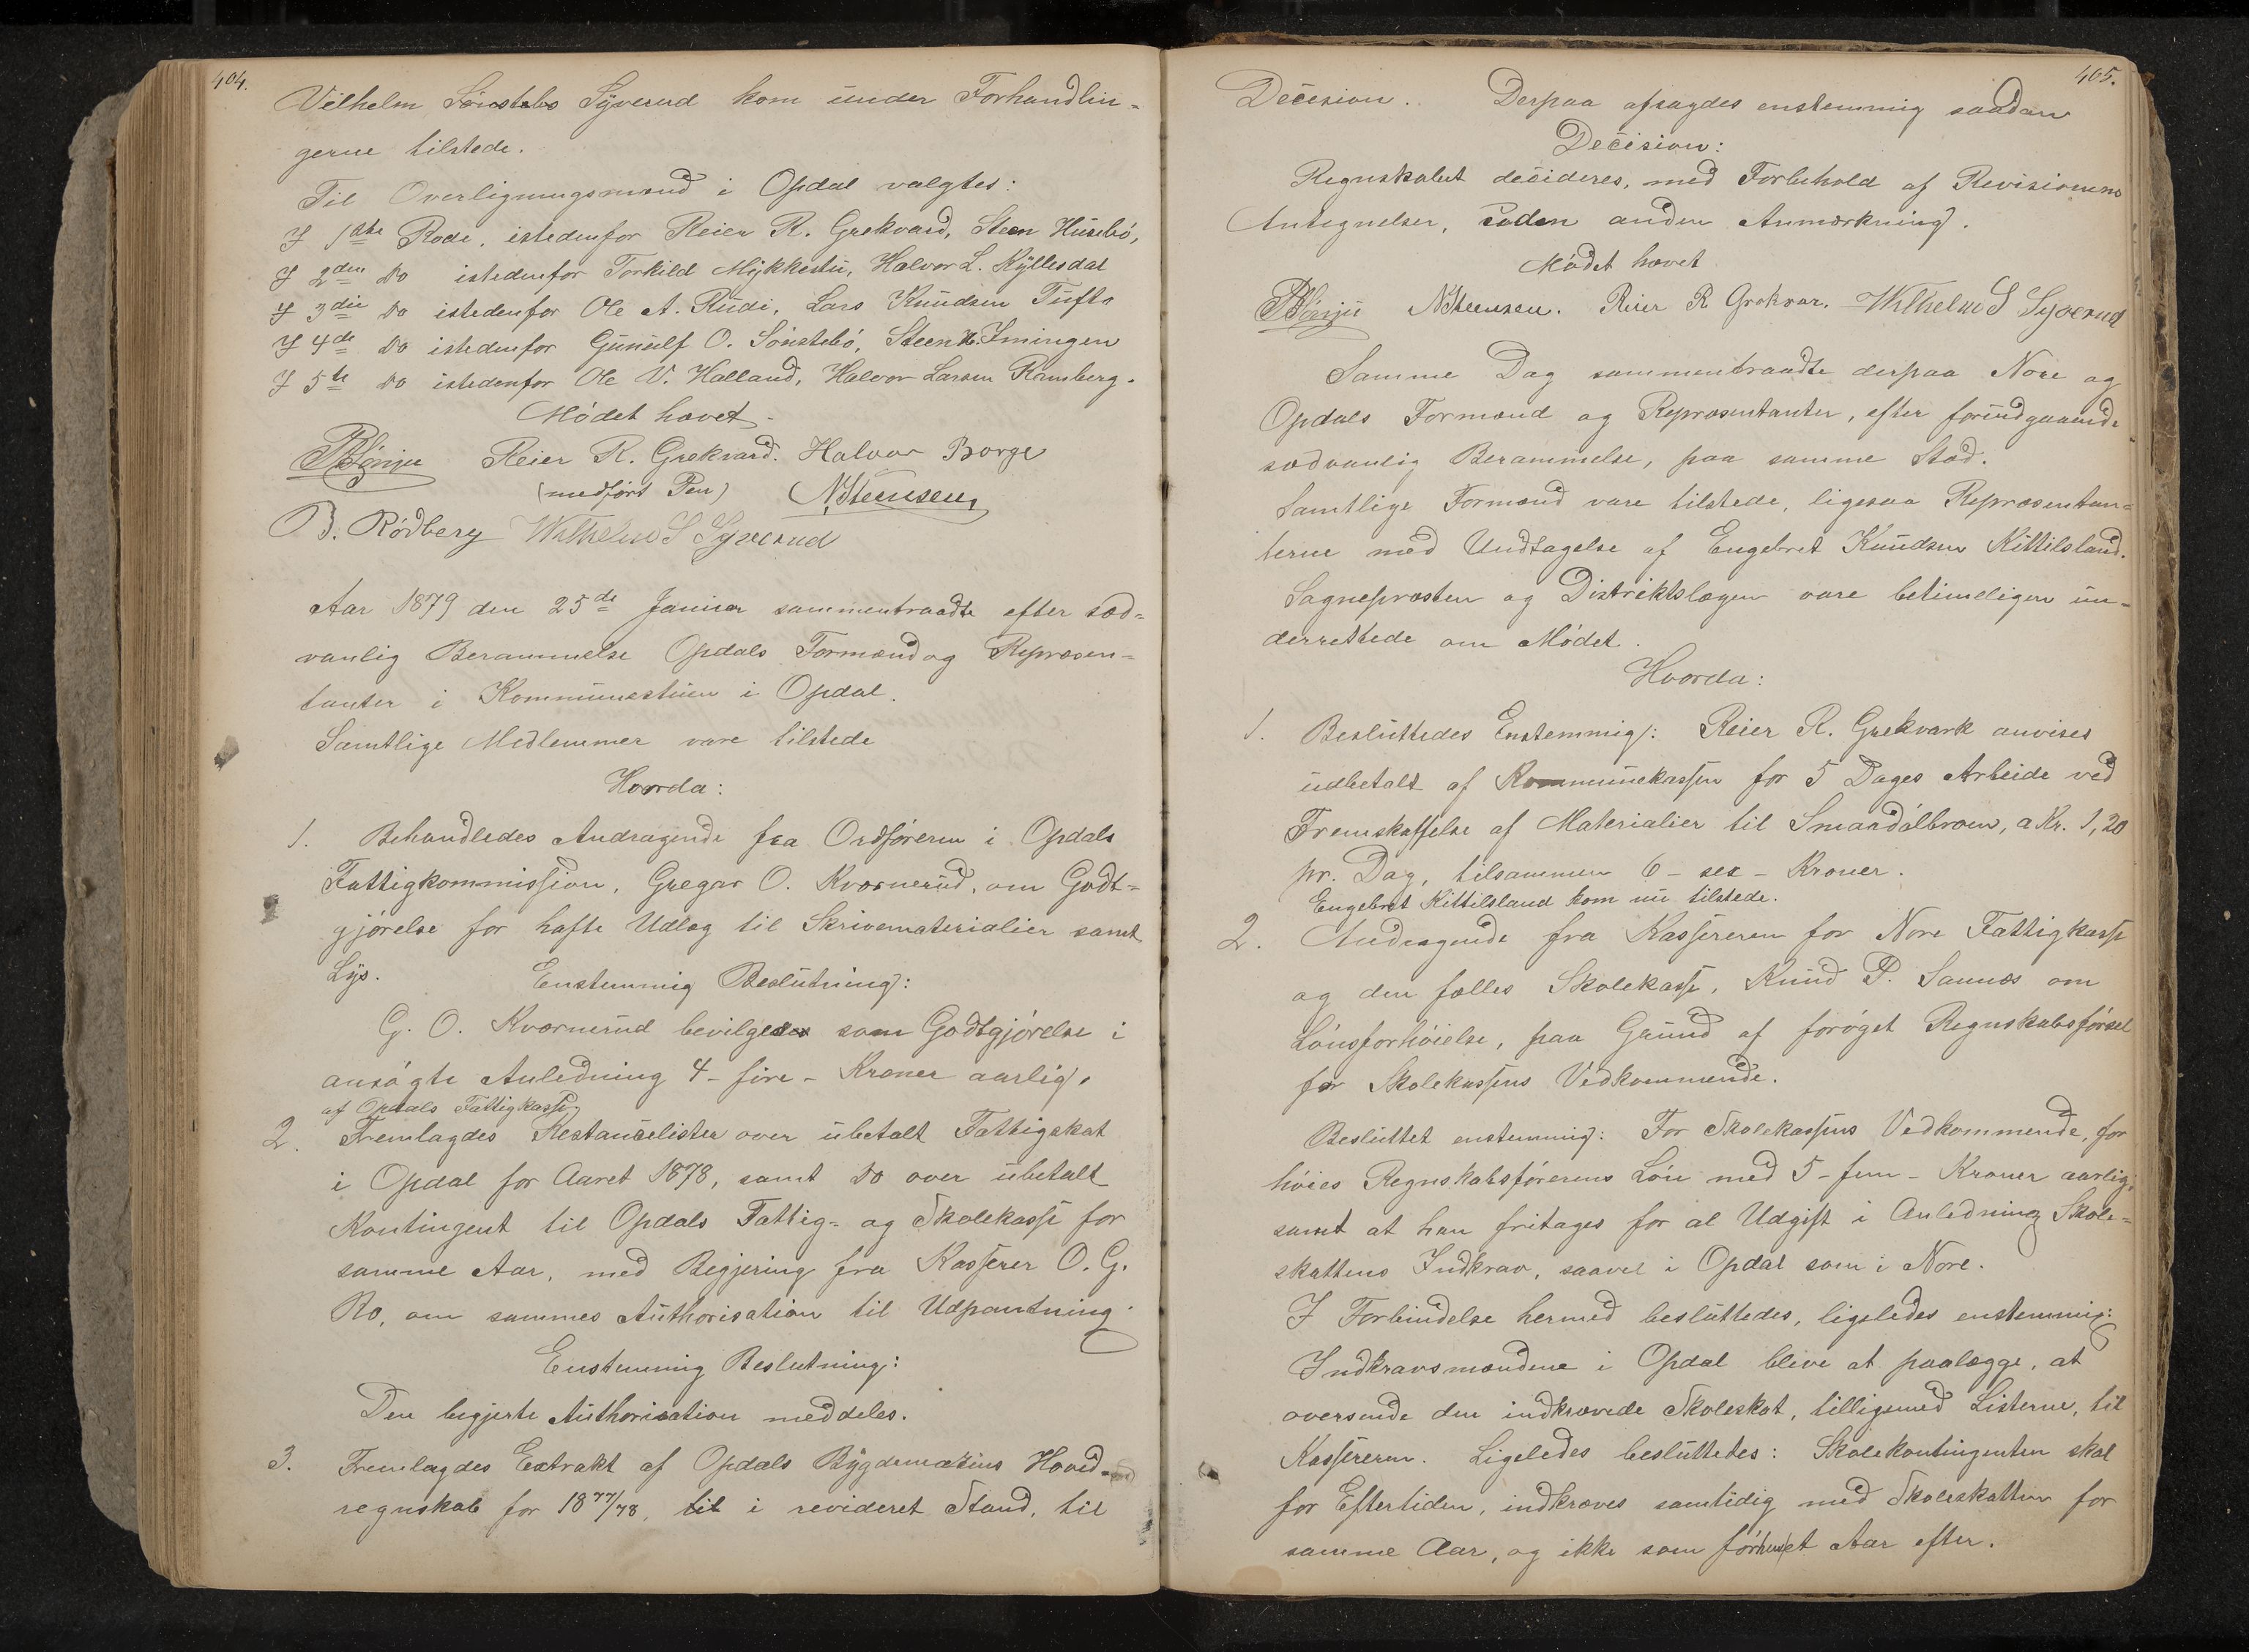 404.
Vilhelm Sönstebø Syverud kom under Forhandlin-
gerne tilstede.
Til Overligningsmænd i Opdal valgtes:
I 1ste Rode, istedenfor Reier R. Grekvard, Steen Husebö,
I 2den Do istedenfor Torkild Mykkestu, Halvor L. Kyllesdal
I 3die Do istedenfor Ole A. Rudi, Lars Knudsen Tufto
I 4de Do istedenfor Gunulf O. Sönstebö, Steen H. Imingen
I 5te Do istedenfor Ole V. Halland, Halvor Larsen Ramberg.
Mödet hævet.
Reier R. Grekvard. Halvor Borge
(medfört Pen) NSteensen,
B. Rödberg Wilhelm S Syverud
Aar 1879 den 25de Januar sammentraadte efter sæd-
vanlig Berammelse Opdals Formænd og Repræsen-
tanter i Kommunestuen i Opdal.
Samtlige Medlemmer vare tilstede
Hvorda:
1. Behandledes Andragende fra Ordföreren i Opdals
Fattigkommission, Gregar O. Kværnerud, om Godt-
gjörelse for hafte Udlæg til Skrivematerialier samt
Lys. Enstemmig Beslutning:
G. O. Kværnerud bevilges som Godtgjörelse i
ansögte Anledning 4 - fire - Kroner aarlig,
af Opdals Fattigkasse.
2. Fremlagdes Restancelister over ubetalt Fattigskat
i Opdal for Aaret 1878, samt Do over ubetalt
Kontingent til Opdals Fattig- og Skolekasse for
samme Aar, med Begjering fra Kasserer O. G.
Ro, om sammes Authorisation til Udpantning.
Enstemmig Beslutning:
Den begjerte Authorisation meddeles.
3. Fremlagdes Extrakt af Opdals Bygdemazins Hoved-
regnskab for 1877/78, til i revideret Stand, til
405.
Decision. Derpaa afsagdes enstemmig saadan
Decision:
Regnskabet decideres, med Forbehold af Revisionens
Antegnelser, uden anden Anmærkning.
Mödet hævet
NSteensen. Reier R Grekvar. Wilhelm S Syverud
Samme Dag sammentraadte derpaa Nore og
Opdals Formænd og Repræsentanter, efter forudgaaende
sædvanlig Berammelse, paa samme Sted.
Samtlige Formænd vare tilstede, ligesaa Repræsentan-
terne med Undtagelse af Engebret Knudsen Kittilsland.
Sognepræsten og Distriktslægen vare betimeligen un-
derrettede om Mödet.
Hvorda:
1. Besluttedes Enstemmig: Reier R. Grekvark anvises
udbetalt af Kommunekassen for 5 Dages Arbeide ved
Fremskaffelse af Materialier til Smaadölbroen, a Kr. 1,20
pr. Dag, tilsammen 6 - sex - Kroner.
Engebret Kittilsland kom nu tilstede.
2. Andragende fra Kassereren for Nore Fattigkasse
og den fælles Skolekasse, Knud P. Sannes om
Lönsforhöielse, paa Grund af foröget Regnskabsförsel
for Skolekassens Vedkommende.
Besluttet enstemmig: For Skolekassens Vedkommende, for
höies Regnskabsförerens Lön med 5 - fem - Kroner aarlig,
samt at han fritages for al Udgift i Anledning Skole-
skattens Indkrav, saavel i Opdal som i Nore.
I Forbindelse hermed besluttedes, ligeledes enstemmig:
Indkravsmændene i Opdal blive at paalægge, at
oversende den indkrævede Skoleskat, tilligemed Listerne, til
Kassereren. Ligeledes besluttedes: Skolekontingenten skal
for Eftertiden, indkræves samtidig med Skoleskatten for
samme Aar, og ikke som för et Aar efter.